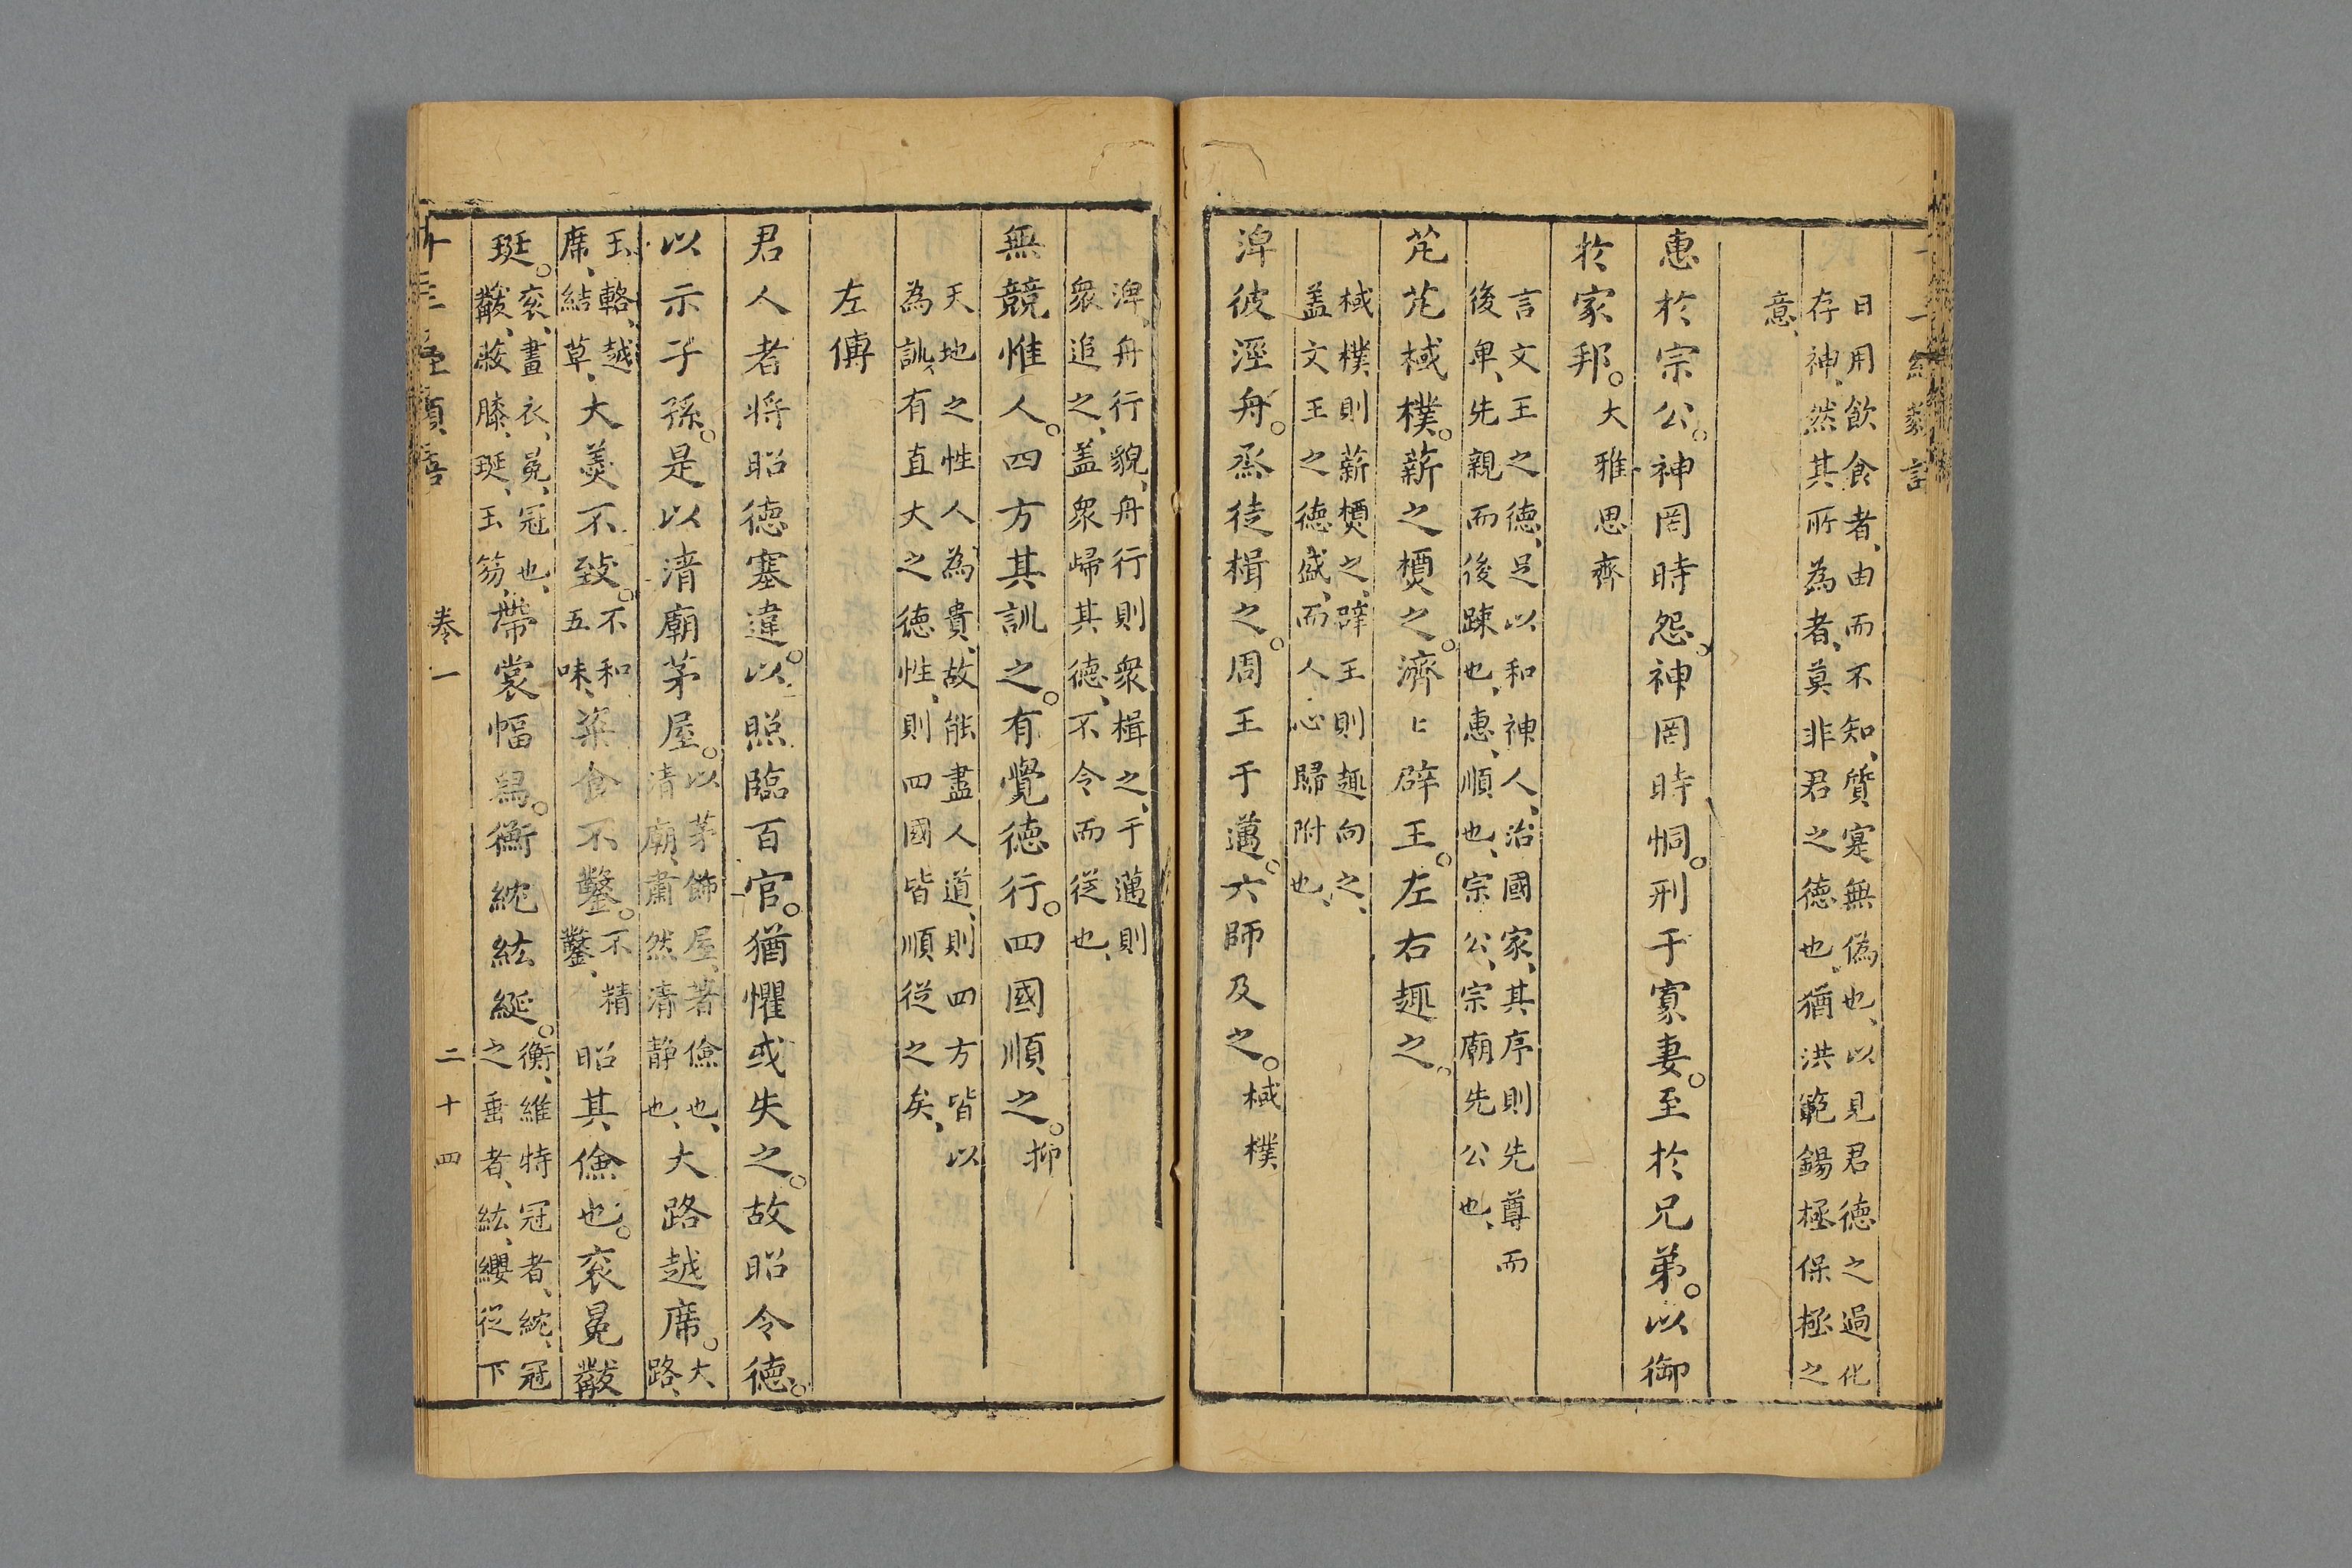 日用飲食者、由而不知、質寔無偽也、以見君德之過化
存神、然其所為者、莫非君之德也、猶洪範錫極保極之
意、
惠於宗公。神罔時怨。神罔時恫。刑于寡妻。至於兄弟。以御
於家邦。大雅思齊
言文王之德、足以和神人、治國家、其序則先尊而
後卑、先親而後踈也、惠、順也、宗公、宗廟先公也、
芃芃棫樸。薪之槱之。濟〻辟王。左右趣之。
棫樸、則薪槱之、辟王則趣向之、
盖文王之德盛、而人心歸附也、
淠彼涇舟。烝徒楫之。周王于邁。六師及之。棫樸
淠、舟行貌、舟行則衆楫之、于邁則
衆追之、盖衆歸其德、不令而從也、
無競惟人。四方其訓之。有覺德行。四國順之。抑
天地之性人為貴、故能盡人道、則四方皆以
為訓、有直大之德性、則四國皆順從之矣、
左傳
君人者将昭德塞違。以照臨百官。猶懼或失之。故昭令德。
以示子孫。是以清廟茅屋。以茅飾屋、著儉也、
清廟、肅然清静也、大路越席。大
路、
玉輅、越
席、結草、大羹不致。不和
五味、粢食不鑿。不精
鑿、昭其儉也。袞冕黻
珽。袞、畫衣、冕、冠也、
黻、蔽膝、珽、玉笏、帶裳幅舄。衡紞紘綖。衡、維特冠者、紞、冠
之垂者、紘、纓從下
卷一
二十四